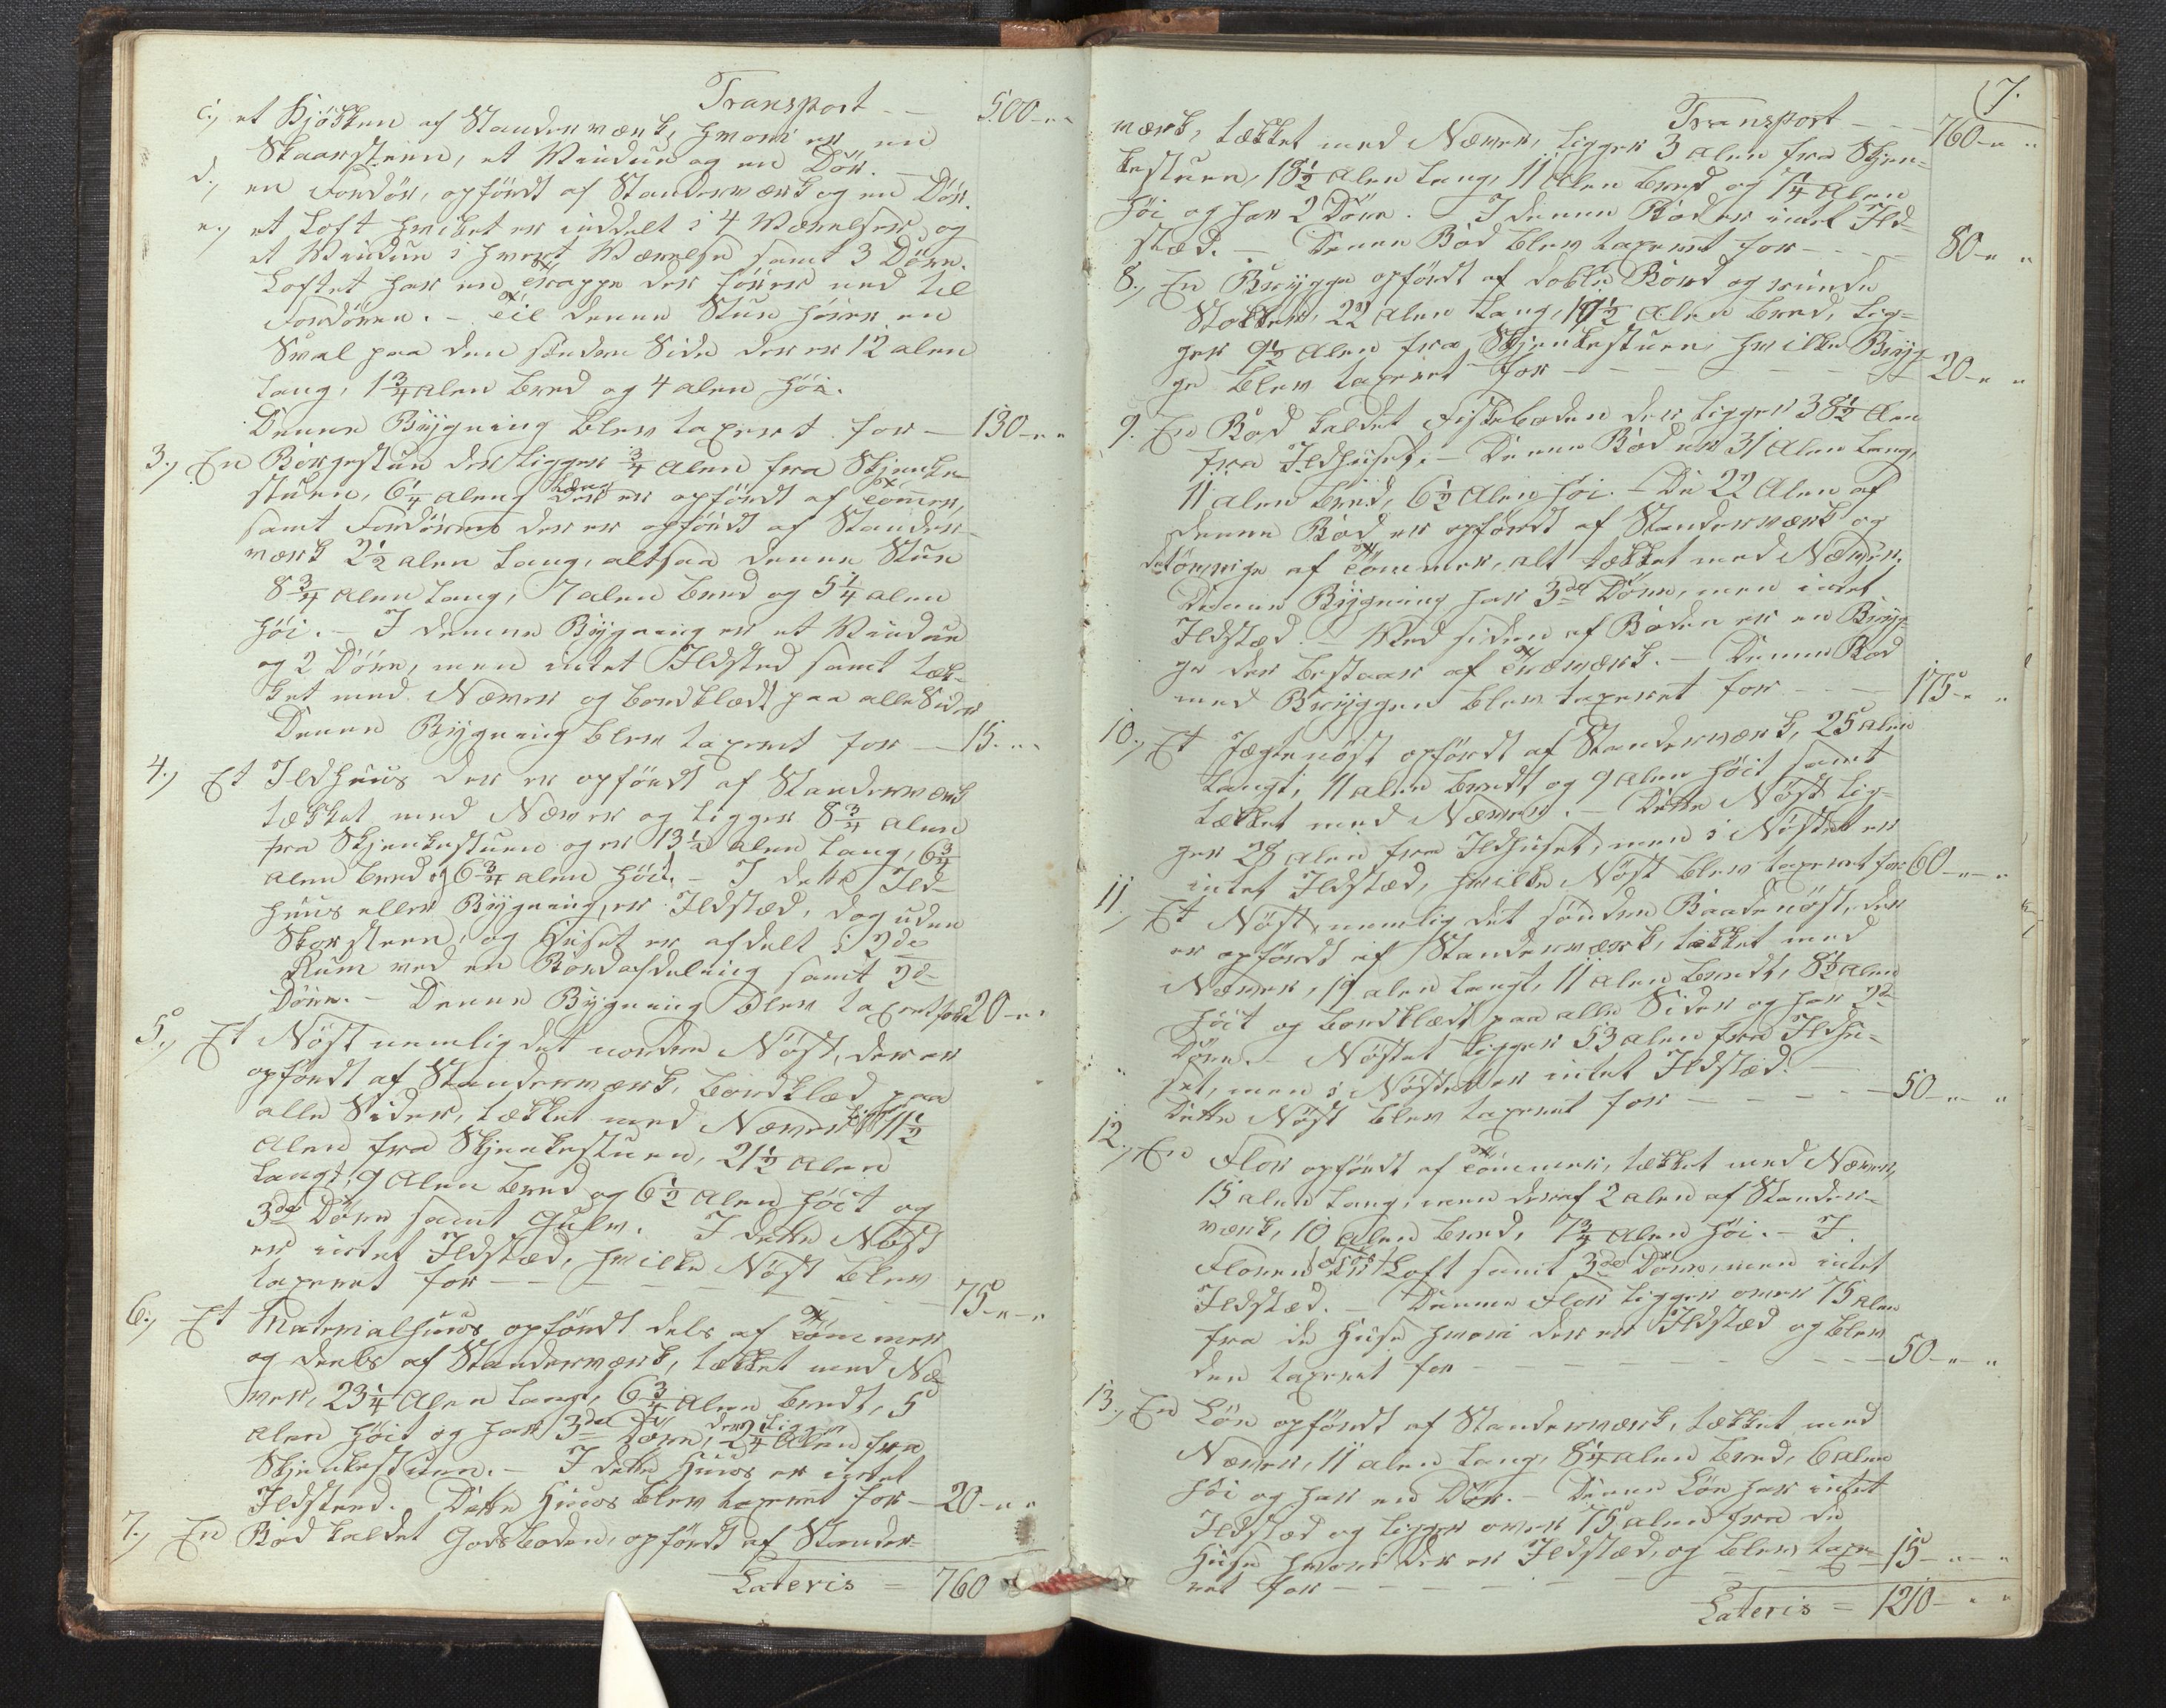 Transport -- 500-"-
c., et Kjökken af Standerværk, hvori er en
Skaarsteen, et Vindue og en Dör.
d., en Fordör, opfördt af Standerværk og en Dör.
e., et Loft hvilket er inddelt i 4 Værelser, og
et Vindue i hvert Værelse samt 3 Döre.
Loftet har en Trappe der förer ned til
Fordören. - Til denne Stue hörer en
Sval paa den söndre Side der er 12 alen
lang, 1¾ alen bred og 4 alen höi.
Denne Bygning blev taxeret for - 130-"-"
3., En Borgestue der ligger ¾ Alen fra Skjenke-
stuen, 6¼ aleng lang der er opfördt af Tömmer,
samt Fordören der er opfördt af Stander-
værk 2½ alen lang, altsaa denne Stue
8¾ alen lang, 7 alen bred og 5¼ alen
höi. - I denne Bygning er et Vindue
og 2 Döre, men intet Ildsted samt tæk-
ket med Næver og bordklædt paa alle Sider
Denne Bygning blev taxeret for - 15-"-"
4., Et Ildhuus der er opfördt af Standerværk
tækket med Næver og ligger 8¾ alen
fra Skjenkestuen og er 13½ alen lang, 6¾
alen bred og 6¾ alen höit. - I dette Ild-
huus eller Bygning, er Ildsted, dog uden
Skorsteen, og Huset er afdelt i 2de
Rum ved en Bordafdeling samt 2de
Döre. - Denne Bygning blev taxeret for 20-"-"
5., Et Nöst nemlig det nordre Nöst, der er
opfördt af Standerværk, bordklæd paa
alle Sider, tækket med Næver ligger 11½
Alen fra Skjenkestuen, 21½ alen
langt, 9 Alen bred og 6½ Alen höit og
3de Döre samt Gulv. I dette Nöst
er intet Ildstæd, hvilke Nöst blev
taxeret for - - - - - 75-"-"
6., Et Materialhuus opfördt dels af Tömmer
og deels af Standerværk, tækket med Næ-
ver, 23¼ Alen langt, 6¾ Alen bredt, 5
alen höit og har 3de Döre, der ligger 2¼ Alen fra
Skjenkestuen. - I dette Huus er intet
Ildsteed. Dette Huus blev taxeret for - 20-"-"
7., En Bod kaldet Godsboden, opfördt af Stander-
Lateris = 760
7.
Transport - - 760-"-"
værk, tækket med Næver, ligger 3 alen fra Skjen-
kestuen, 18½ Alen lang, 11 Alen bred og 7¼ Alen
höi og har 2 Döre. I denne Bod er intet Ild-
stæd. - Denne Bod blev taxeret for - - 80-"-"
8., En Brygge opfördt af doble Bord og runde
Stokker, 22 alen lang, 19½ Alen bred, lig-
ger 9½ Alen fra Skjenkestuen, hvilke Bryg-
ge blev taxeret for - - - - 20-"-"
9. En Bod kaldet Fiskeboden der ligger 38½ Alen
fra Ildhuset. - Denne Bod er 31 Alen lang,
11 alen bred, 6½ Alen höi. - De 22 Alen af
denne Bod er opfördt af Standerværk og
det övrige af Tömmer, alt tækket med Næver.
Denne Bygning har 3de Döre, men intet
Ildstæd. - Ved siden af Boden er en Bryg-
ge der bestaar af Træværk. - Denne Bod
med Bryggen blev taxeret for - - 175-"-"
10., Et Jægtenöst opfördt af Standerværk, 25 alen
langt, 11 alen bredt og 9 alen höit samt
tækket med Næver. - Dette Nöst lig-
ger 28 Alen fra Ildhuset, men i Nöstet er
intet Ildstæd, hvilke Nöst blev taxeret for 60-"-"
11. Et Nöst, nemlig det söndre Baadenöst, der
er opfördt af Standerværk, tækket med
Næver, 19 alen langt, 11 alen bredt, 8½ alen
höit og bordklædt paa alle Sider og har 2de
Döre. - Nöstet ligger 53 alen fra Ildhu-
set, men i Nöstet er intet Ildstæd. -
Dette Nöst blev taxeret for - - - - 50-"-"
12., En Flor opfördt af Tömmer, tækket med Næver,
15 alen lang, men deraf 2 alen af Stander-
værk, 10 alen bred, 7¾ Alen höi. - I
Floren er Loft samt 3de Döre, men intet
Ildstæd. - Denne Flor ligger over 75 Alen
fra de Huse hvori der er Ildstæd og blev
den taxeret for - - - - - 50-"-"
13., En Löe opfördt af Standerværk, tækket med
Næver, 11 alen lang, 8¼ alen bred, 6 alen
höi og har en Dör. - Denne Löe har intet
Ildstæd og ligger over 75 alen fra de
Huse hvori der er Ildstæd, og blev taxe-
ret for - - - - - 15-"-"
Lateris = 1210-"-"